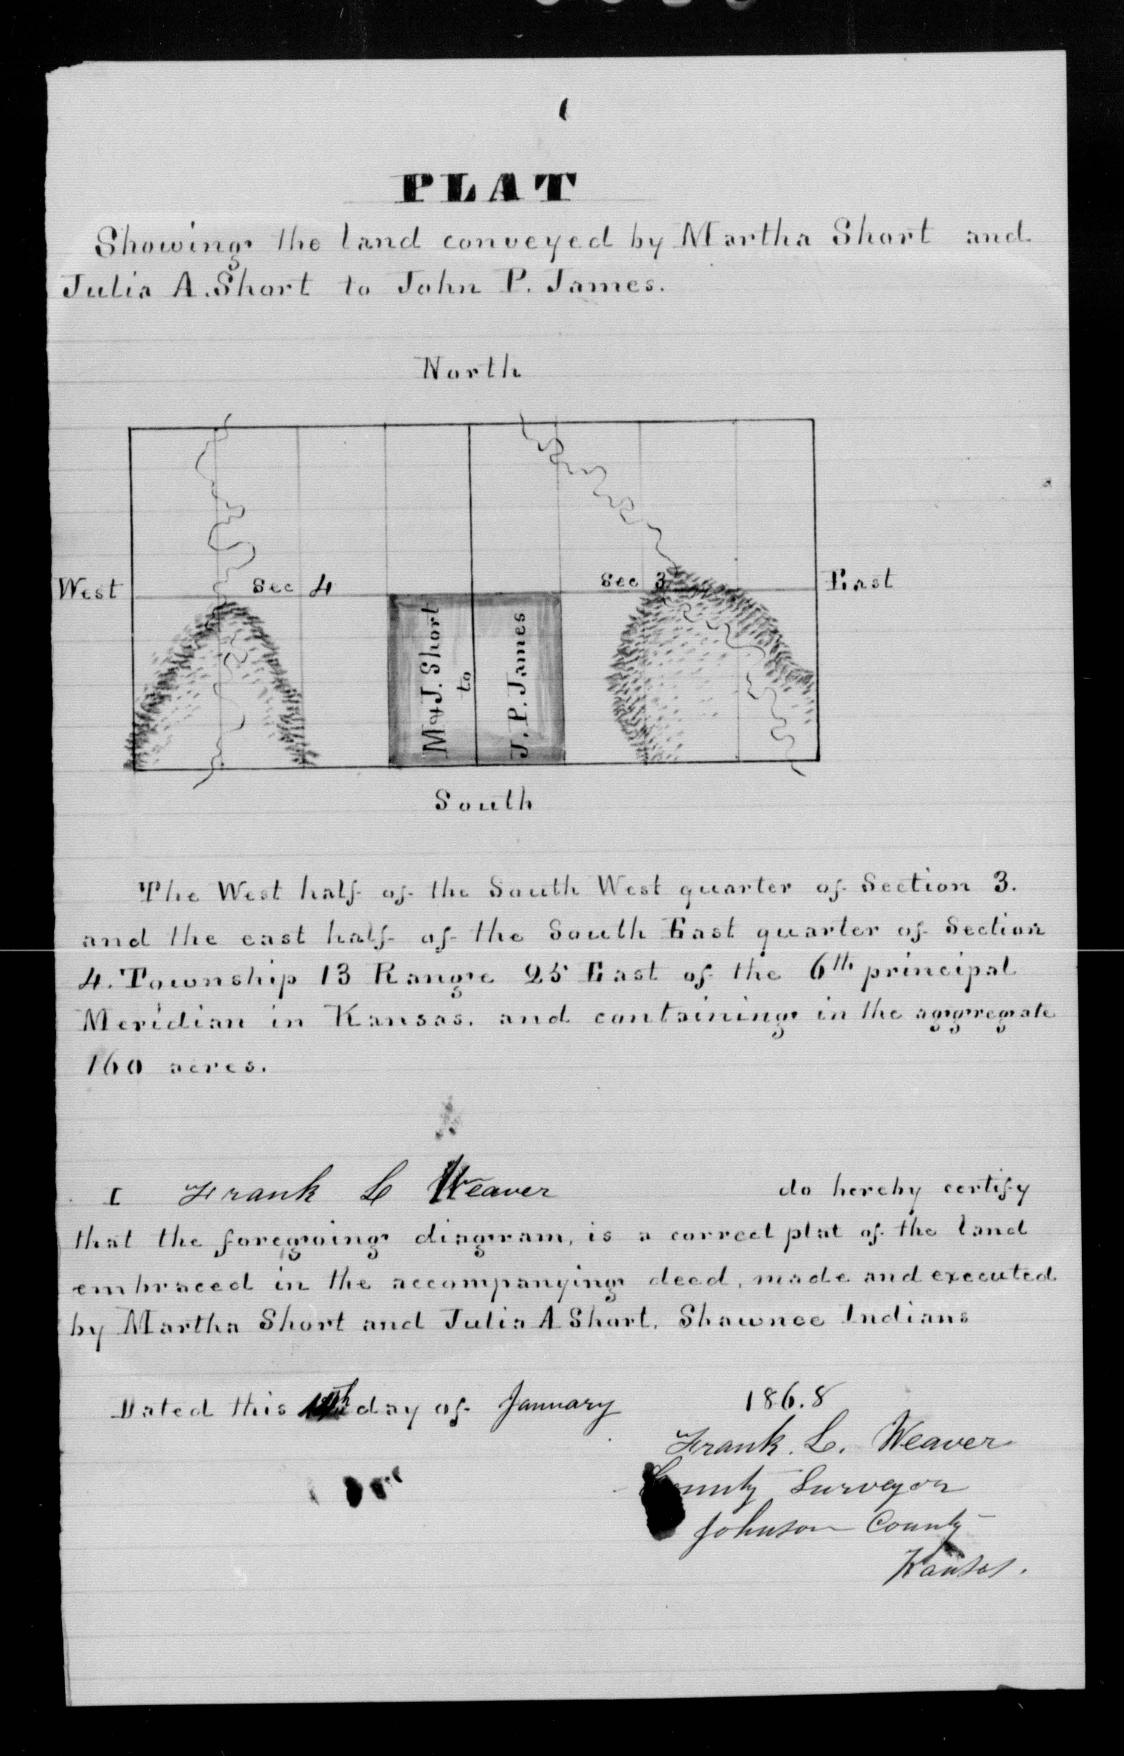 PLAT
Showing the land conveyed by Martha Short and
Julia A. Short to John P. James.
North
West
Sec 4
Sec 3
East
M & J. Short
to
J. P. James
South
The West half of the South West quarter of Section 3.
and the east half of the South East quarter of Section
4. Township 13 Range 25 East of the 6th principal
Meridian in Kansas. and containing in the aggregate
160 acres.
I Frank L Weaver do hereby certify
that the foregoing diagram, is a correct plat of the land
embraced in the accompanying deed, made and executed
by Martha Short and Julia A Short. Shawnee Indians
Dated this day of January 1868
Frank. L. Weaver
County Surveyor
Johnson County
Kansas.